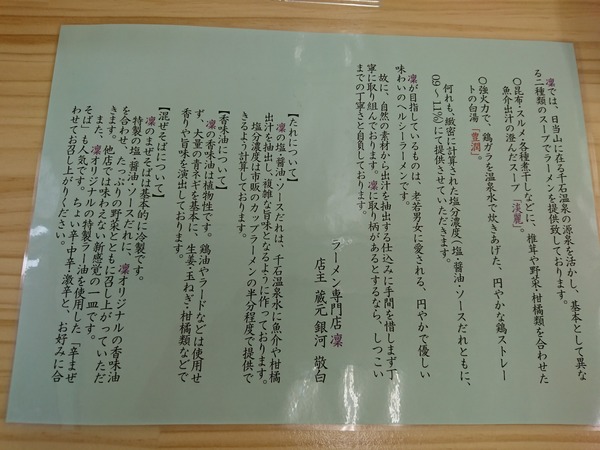 凛では、日当山に在る千石温泉の源泉を活かし、基本として異な
る二種類のスープでラーメンを提供致しております。
〇昆布・スルメ・各種煮干しなどに、椎茸や野菜・柑橘類を合わせた
魚介出汁の澄んだスープ「淡麗」。
〇強火力で、鶏ガラを温泉水で炊きあげた、円やかな鶏ストレー
トの白湯「豊潤」。
何れも、緻密に計算された塩分濃度(塩・醤油・ソースだれともに、
0.9〜1.1%)にて提供させていただきます。
凛が目指しているラーメンは、老若男女に愛される、円やかで優しい
味わいのヘルシーラーメンです。
故に、自然の素材から出汁を抽出する仕込みに手間を惜しまず丁
寧に取り組んでおります。凛に取り柄があるとするなら、しつこい
までの丁寧さと自負しております。
ラーメン専門店 凛
店主 蔵元 銀河 敬白
【たれについて】
凛の塩・醤油・ソースだれは、千石温泉水に魚介や柑橘
出汁を抽出し、複雑な旨味となるように作っております。
塩分濃度は市販のカップラーメンの半分程度で提供で
きるよう計算しております。
【香味油について】
凛の香味油は植物性です。鶏油やラードなどは使用せ
ず、大量の青ネギを基本に、生姜・玉ねぎ・柑橘類などで
香りや旨味を演出しております。
【混ぜそばについて】
凛のまぜそばは基本的に冷製です。
特製の塩・醤油・ソースだれに、凛オリジナルの香味油
を合わせ、たっぷりの野菜とともに召し上がっていただ
きます。他店では味わえない新感覚の一皿です。
また、凛オリジナルの特製ラー油を使用した「辛まぜ
そば」も人気です。ちょい辛・中辛・激辛と、お好みに合
わせてお召し上がりください。